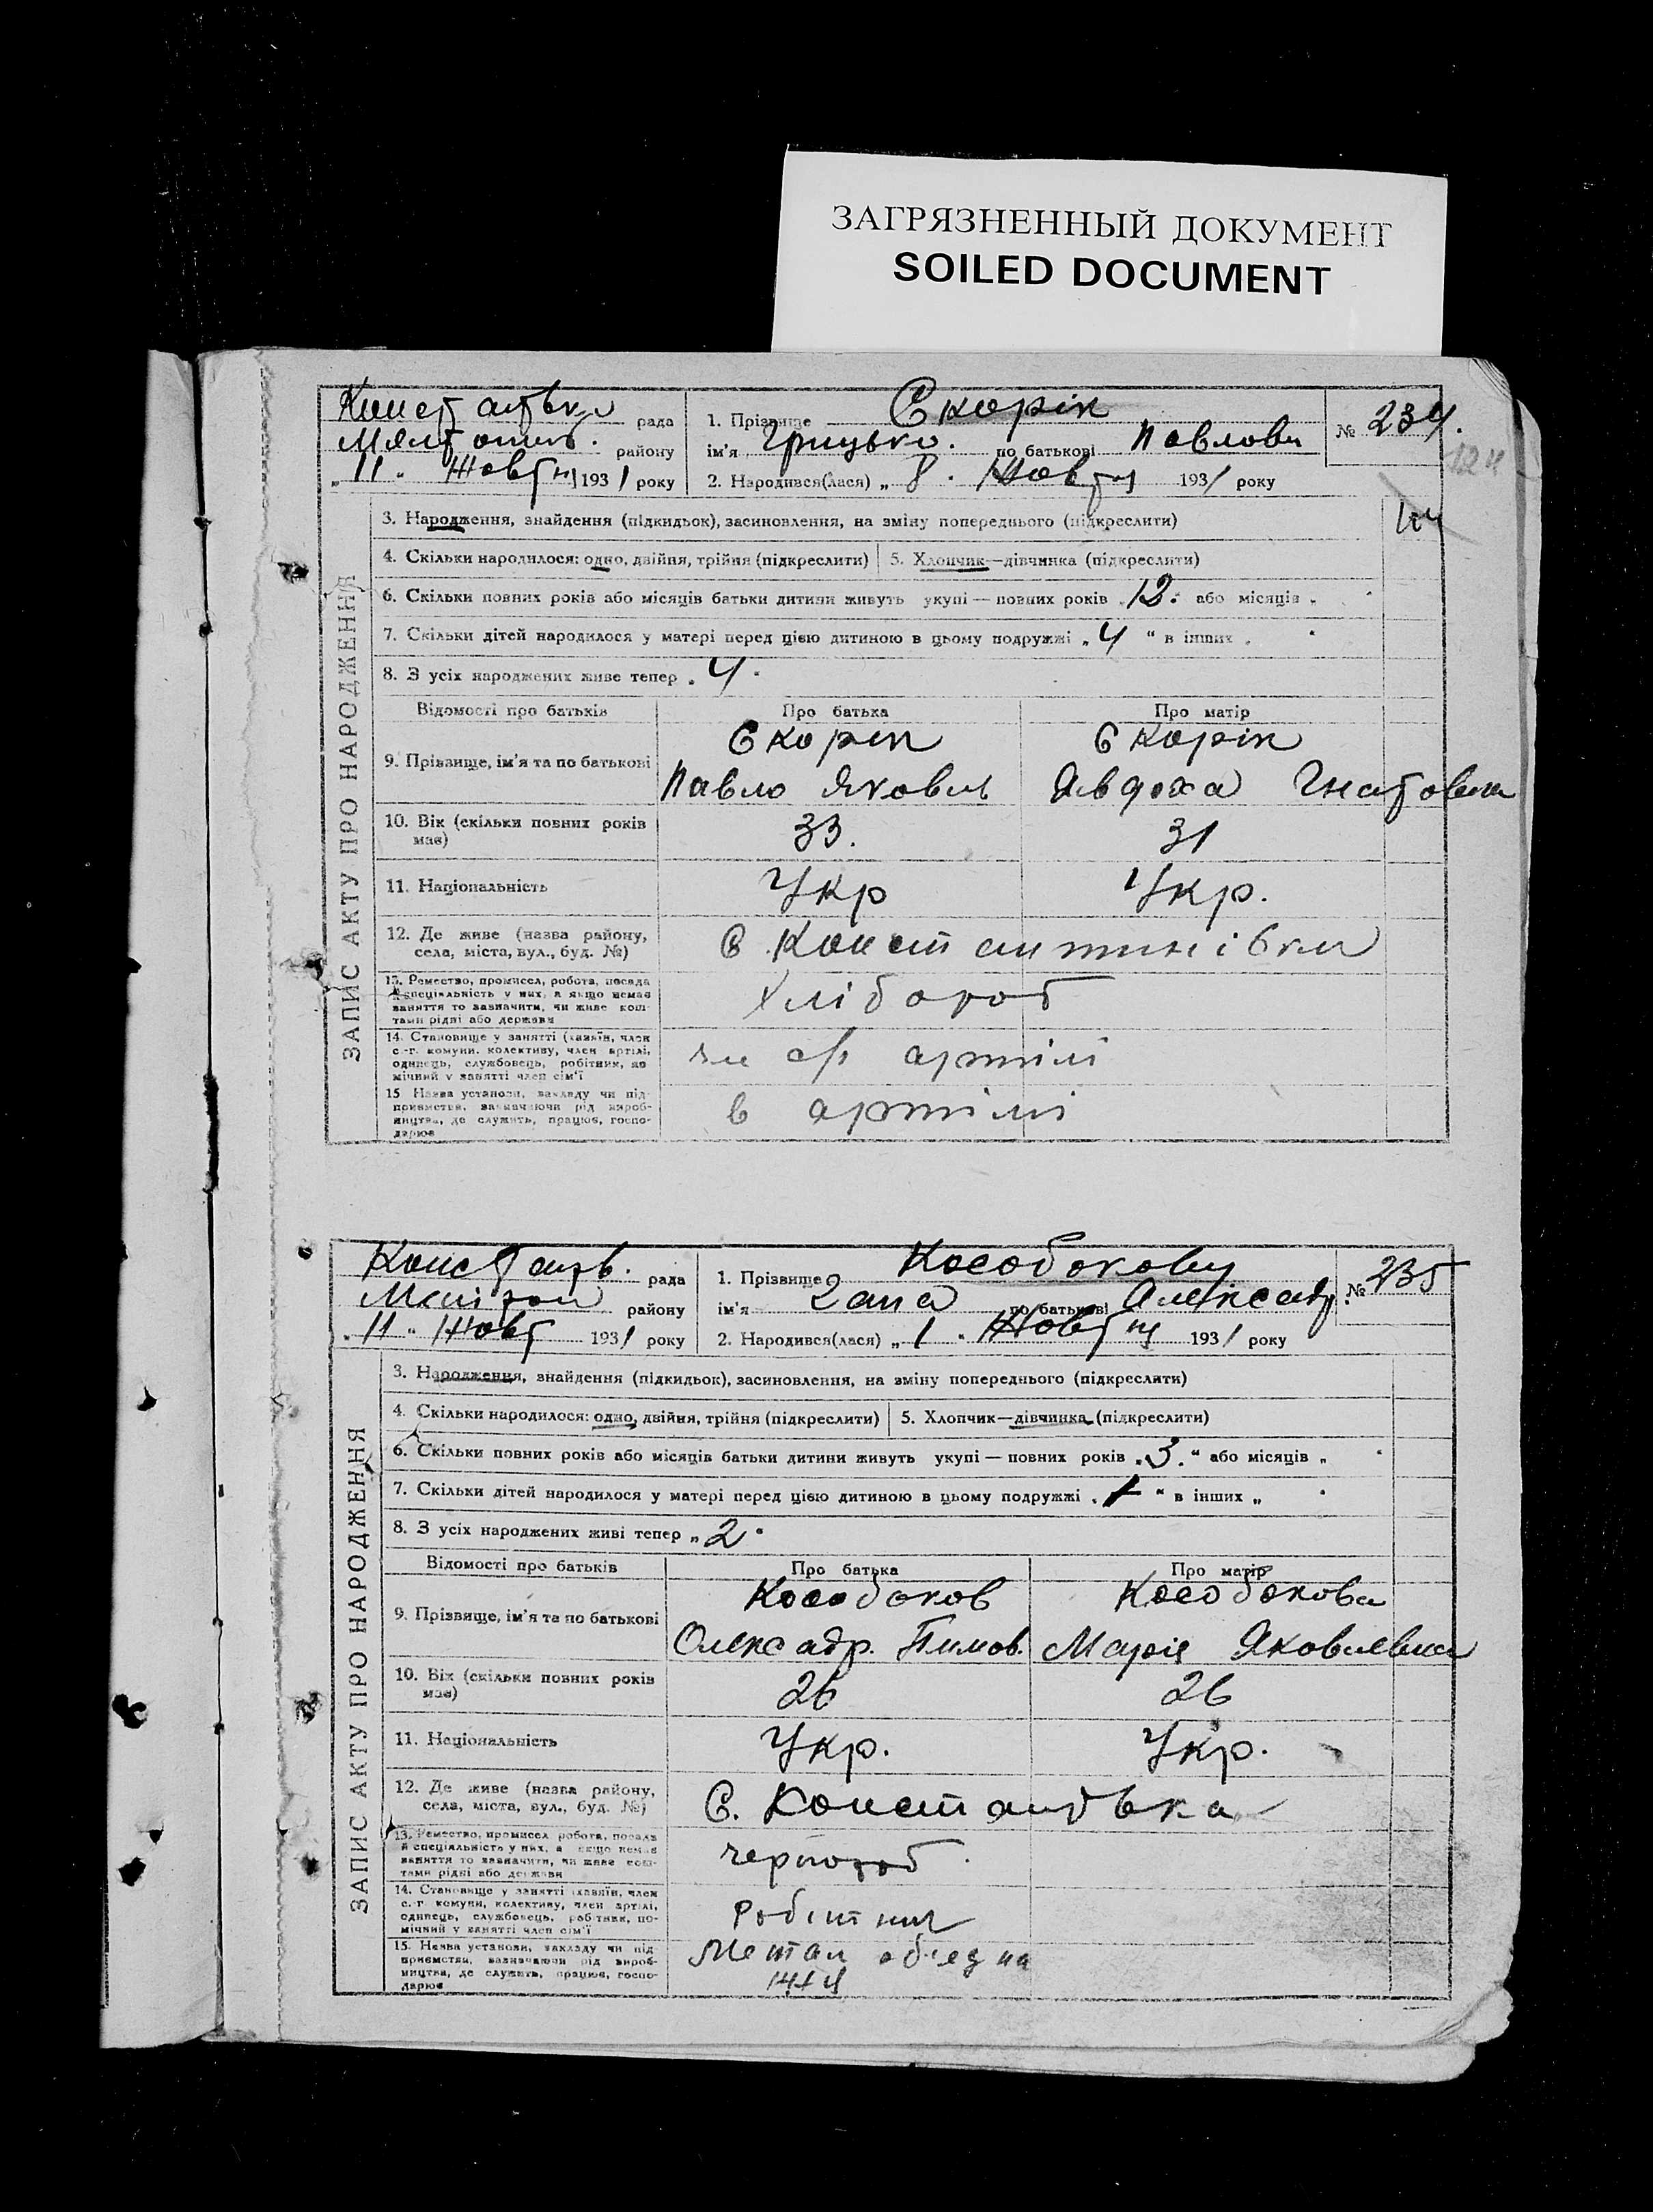 ЗАГРЯЗНЕННЫЙ ДОКУМЕНТ
SOILED DOCUMENT
рада
району
„ 11 " Жовтня 1931 року
1. Прізвище Скорік
ім'я Грицько. по батькові Павлови
2. Народився(лася) „ 8 " Жовтня 1931 року
№ 234.
ЗАПИС АКТУ ПРО НАРОДЖЕННЯ
3. Народження, знайдення (підкидьок), засиновлення, на зміну попереднього (підкреслити)
4. Скільки народилося: одно, двійня, трійня (підкреслити)
5. Хлопчик—дівчинка (підкреслити)
6. Скільки повних років або місяців батьки дитини живуть укупі — повних років „ 12. або місяців „
7. Скільки дітей народилося у матері перед цією дитиною в цьому подружжі „ 4 " в інших „ "
8. З усіх народжених живе тепер „ 4 "
Відомості про батьків
Про батька
Про матір
9. Прізвище, ім'я та по батькові
Скорік
Павло Якович
Скорік
Явдоха Гнатовна
10. Вік (скільки повних років має)
33.
31
11. Національність
Укр
Укр.
12. Де живе (назва району,
села, міста, вул., буд. №)
С. Константинівки
13. Ремество, промисел, робота, посада
й спеціяльність у них, а якщо немає
заняття то зазначити, чи живе кош-
тами рідні або держави
Хлібороб
14. Становище у занятті (хазяїн, член
с.-г. комуни, колективу, член артілі,
одинець, службовець, робітник, по
мічний у занятті член сім'ї
чл с/г артілі
15 Назва установи, закладу чи під
приємства, зазначаючи рід вироб-
ництва, де служить, працює, госпо-
дарює
в артілі
рада
району
„ 11 " Жовт 1931 року
1. Прізвище Кособокову
ім'я по батькові Алексадр.
2. Народився(лася) „ 1 " Жовтня 1931 року
№ 235
ЗАПИС АКТУ ПРО НАРОДЖЕННЯ
3. Народження, знайдення (підкидьок), засиновлення, на зміну попереднього (підкреслити)
4. Скільки народилося: одно, двійня, трійня (підкреслити)
5. Хлопчик—дівчинка (підкреслити)
6. Скільки повних років або місяців батьки дитини живуть укупі — повних років „ 3. " або місяців „ "
7. Скільки дітей народилося у матері перед цією дитиною в цьому подружжі „ 1 " в інших „ "
8. З усіх народжених живі тепер „ 2 "
Відомості про батьків
Про батька
Про матір
9. Прізвище, ім'я та по батькові
Кособоков
Олексадр. Тимов.
Кособокова
Марія Яковлевна
10. Вік (скільки повних років
має)
26
26
11. Національність
Укр.
Укр.
12. Де живе (назва району,
села, міста, вул., буд. №)
С. Констандівка
13. Ремество, промисел робота, посада
й спеціяльність у них, а якщо немає
заняття то зазначити, чи живе кош-
тами рідні або держави
Чернороб.
14. Становище у занятті (хазяїн, член
с.-г. комуни, колективу, член артілі,
одинець, службовець, робітник, по-
мічний у занятті член сім'ї
Робітник
15. Назва установи, закладу чи під
приємства, зазначаючи рід вироб-
ництва, де служить, працює, госпо-
дарює
Метал обєдна
ння